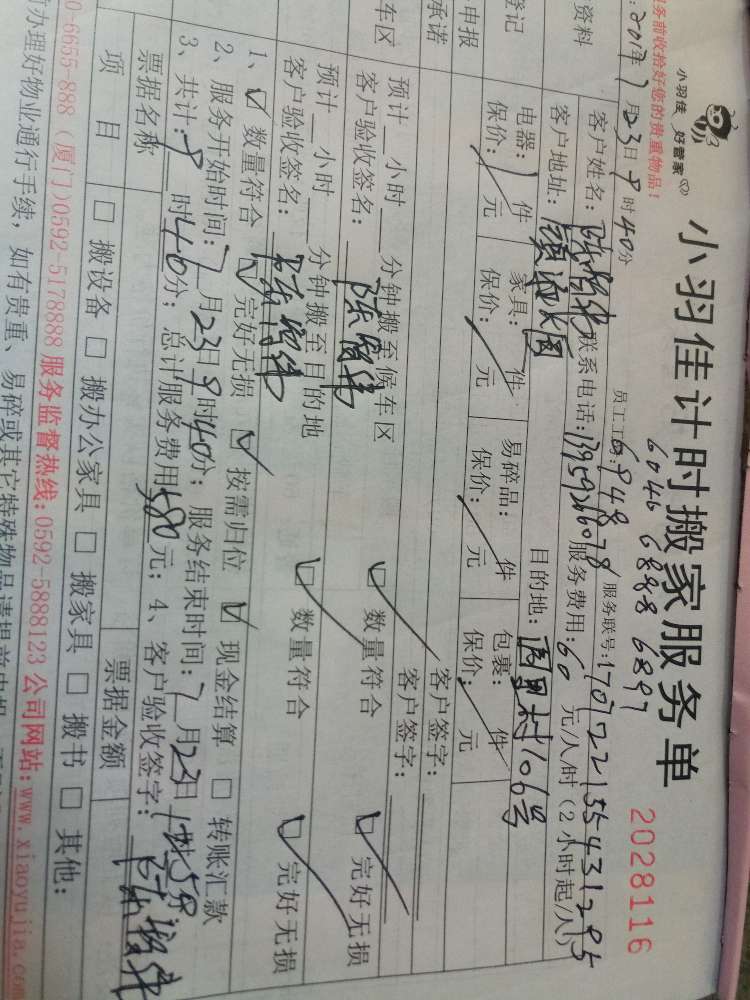 小羽佳 好管家
小羽佳计时搬家服务单
2028116
务前收拾好您的贵重物品！
6046 6888 6897
2017年7月23日9时40分
员工工号：6948
服务联号：170722155431295
资料
客户姓名：
联系电话：13959266078
服务费用：60元/人/时（2小时起/人）
客户地址：
目的地：
村106号
登记
电器： 件
家具： 件
易碎品： 件
包裹： 件
保价： 元
保价： 元
保价： 元
保价： 元
申报
承诺
客户签字：
客户签字：
车区
预计 小时 分钟搬至候车区
客户验收签名：
数量符合
完好无损
预计 小时 分钟搬至目的地
客户验收签名：
数量符合
完好无损
1、 数量符合 完好无损 按需归位 现金结算 转账汇款
2、服务开始时间：7月23日9时40分；服务结束时间：7月23日
3、共计：9时40分；总计服务费用580元；4、客户验收签字：
票据名称
票据金额
项 目
搬设备 搬办公家具 搬家具 搬书 其他：
0-6655-888（厦门）0592-5178888 服务监督热线：0592-5888123 公司网站：www.xiaoyujia.com
办理好物业通行手续，如有贵重、易碎或其它特殊物品请提前申报